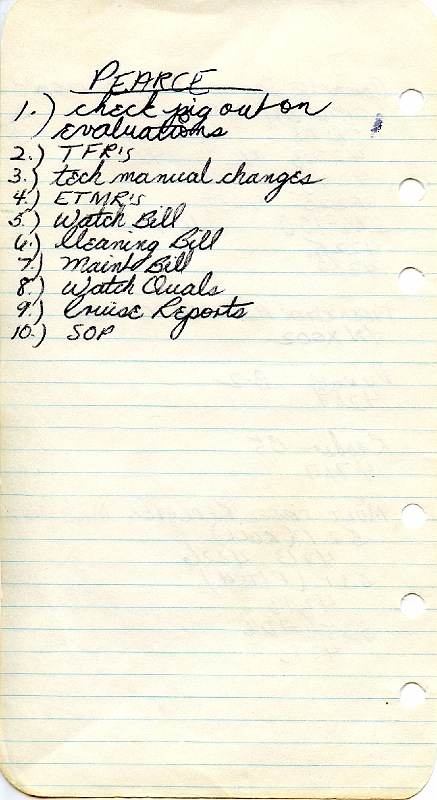 PEARCE
1.) check pig out on
evaluations
2.) TFR's
3.) tech manual changes
4.) ETMR's
5.) Watch Bill
6.) Cleaning Bill
7.) Maint Bill
8.) Watch Quals
9.) Cruise Reports
10.) SOP